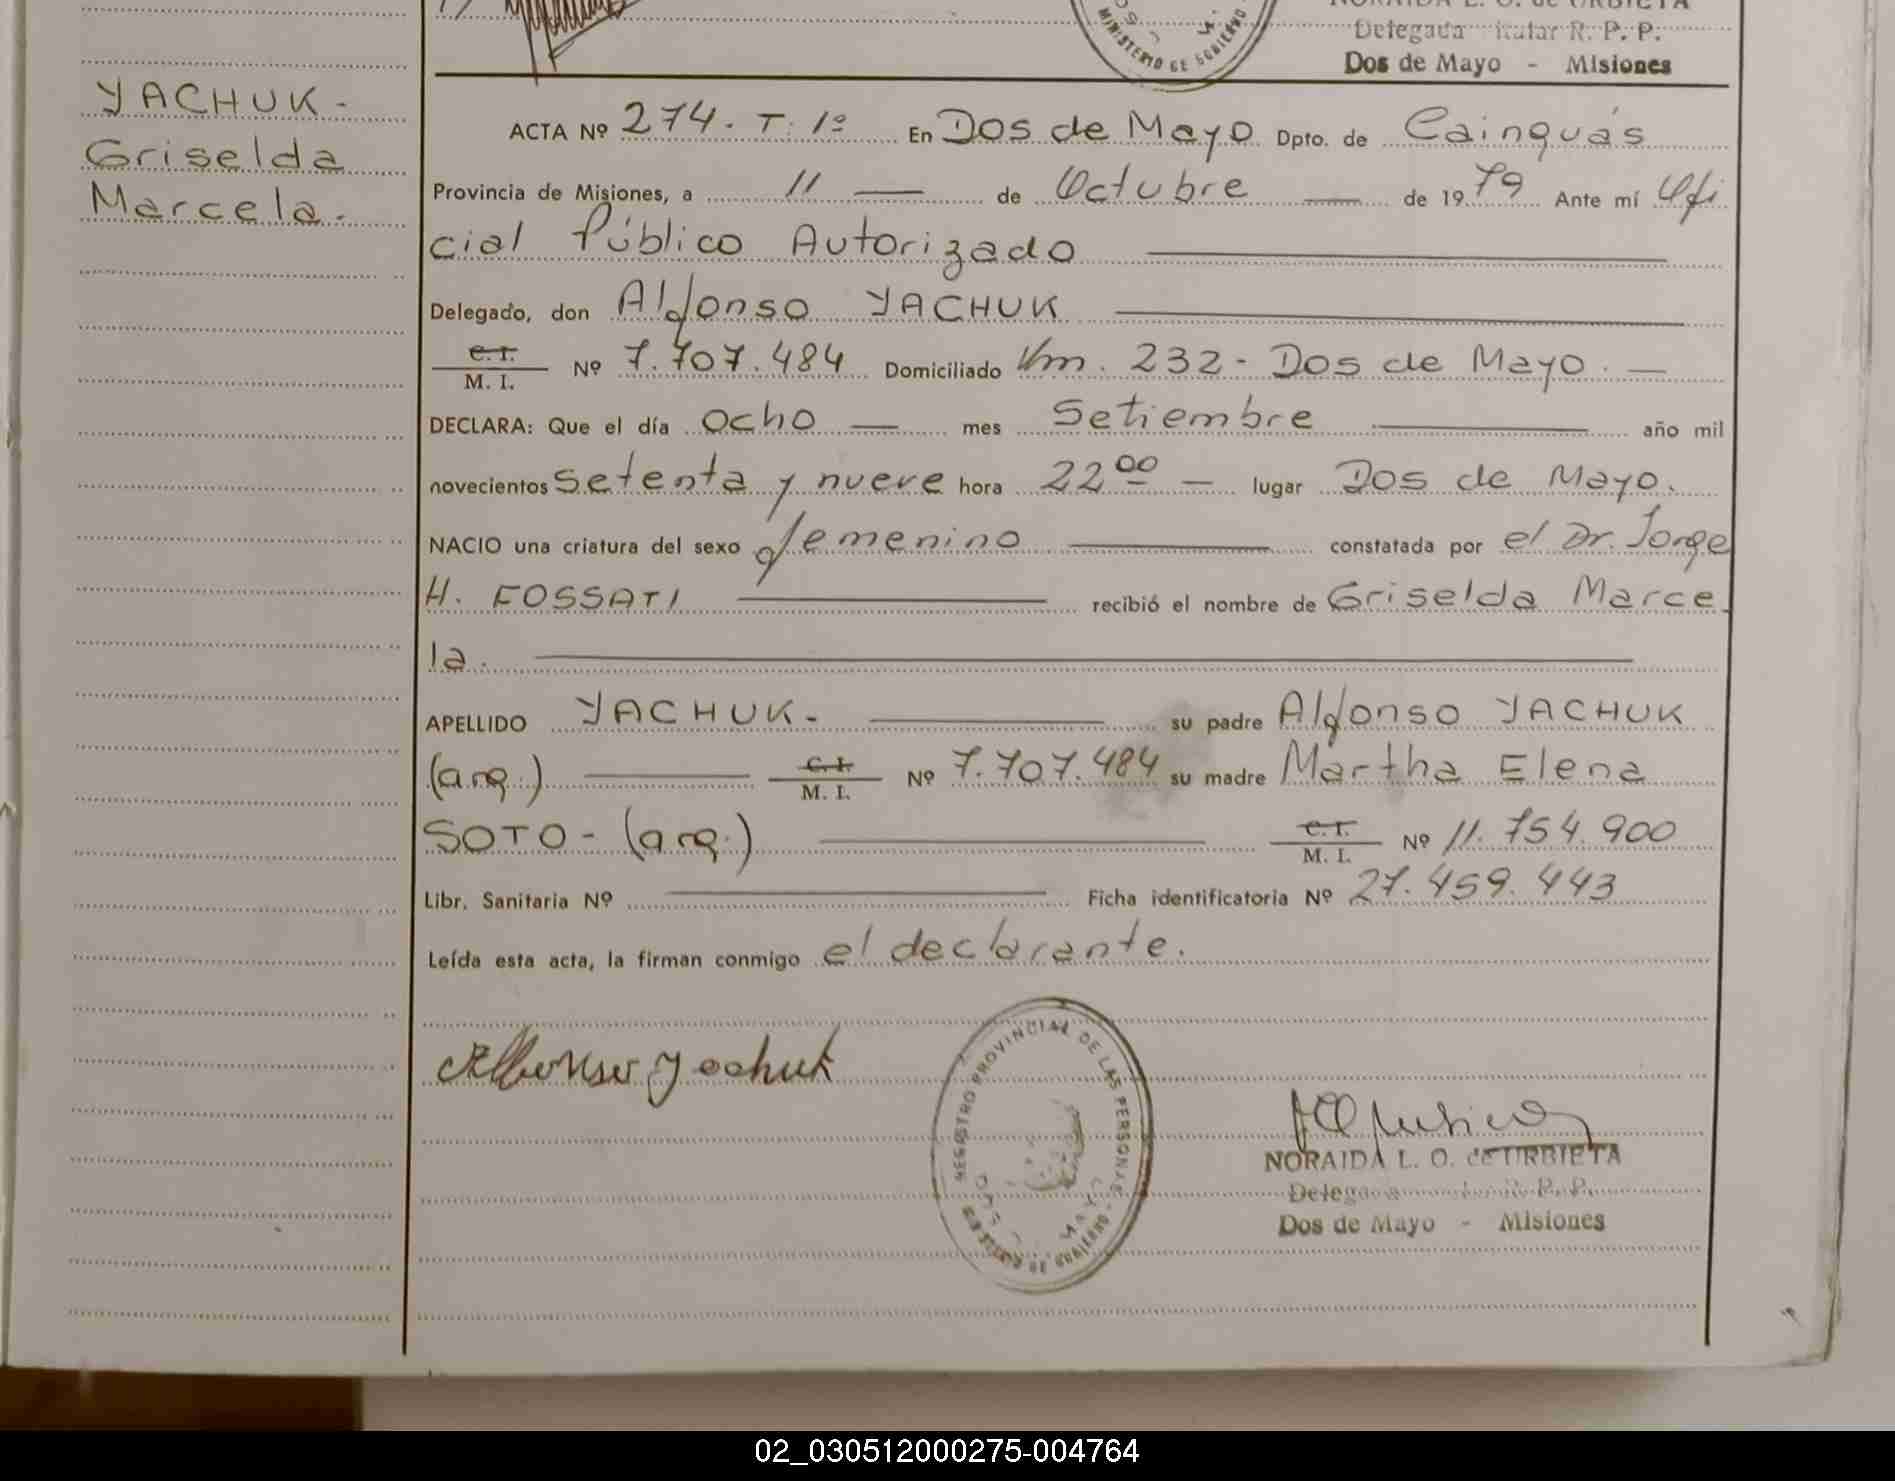 Delegada Titular R. P. P.
Dos de Mayo - Misiones
MINISTERIO DE GOBIERNO
YACHUK.
Griselda
Marcela.
ACTA Nº 274. T. 1º En Dos de Mayo Dpto. de Cainguás
Provincia de Misiones, a 11 — de Octubre — de 1979 Ante mí Ofi
cial Público Autorizado
Delegado, don Alfonso YACHUK
C. I.
M. I. Nº 7.707.484 Domiciliado Km. 232 - Dos de Mayo. —
DECLARA: Que el día ocho — mes Setiembre — año mil
novecientos setenta y nueve hora 22 00 — lugar Dos de Mayo.
NACIO una criatura del sexo femenino — constatada por el Dr. Jorge
H. FOSSATI — recibió el nombre de Griselda Marce
la.
APELLIDO YACHUK. — su padre Alfonso YACHUK
(arg.) — C. I. M. I. Nº 7.707.484 su madre Martha Elena
SOTO - (arg.) — C. I. M. I. Nº 11.754.900
Libr. Sanitaria Nº — Ficha identificatoria Nº 27.459.443
Leída esta acta, la firman conmigo el declarante.
Alfonso Yachuk
REGISTRO PROVINCIAL DE LAS PERSONAS
DOS DE MAYO
MINISTERIO DE GOBIERNO
NORAIDA L. O. de URBIETA
R. P. P.
Dos de Mayo - Misiones
02_030512000275-004764